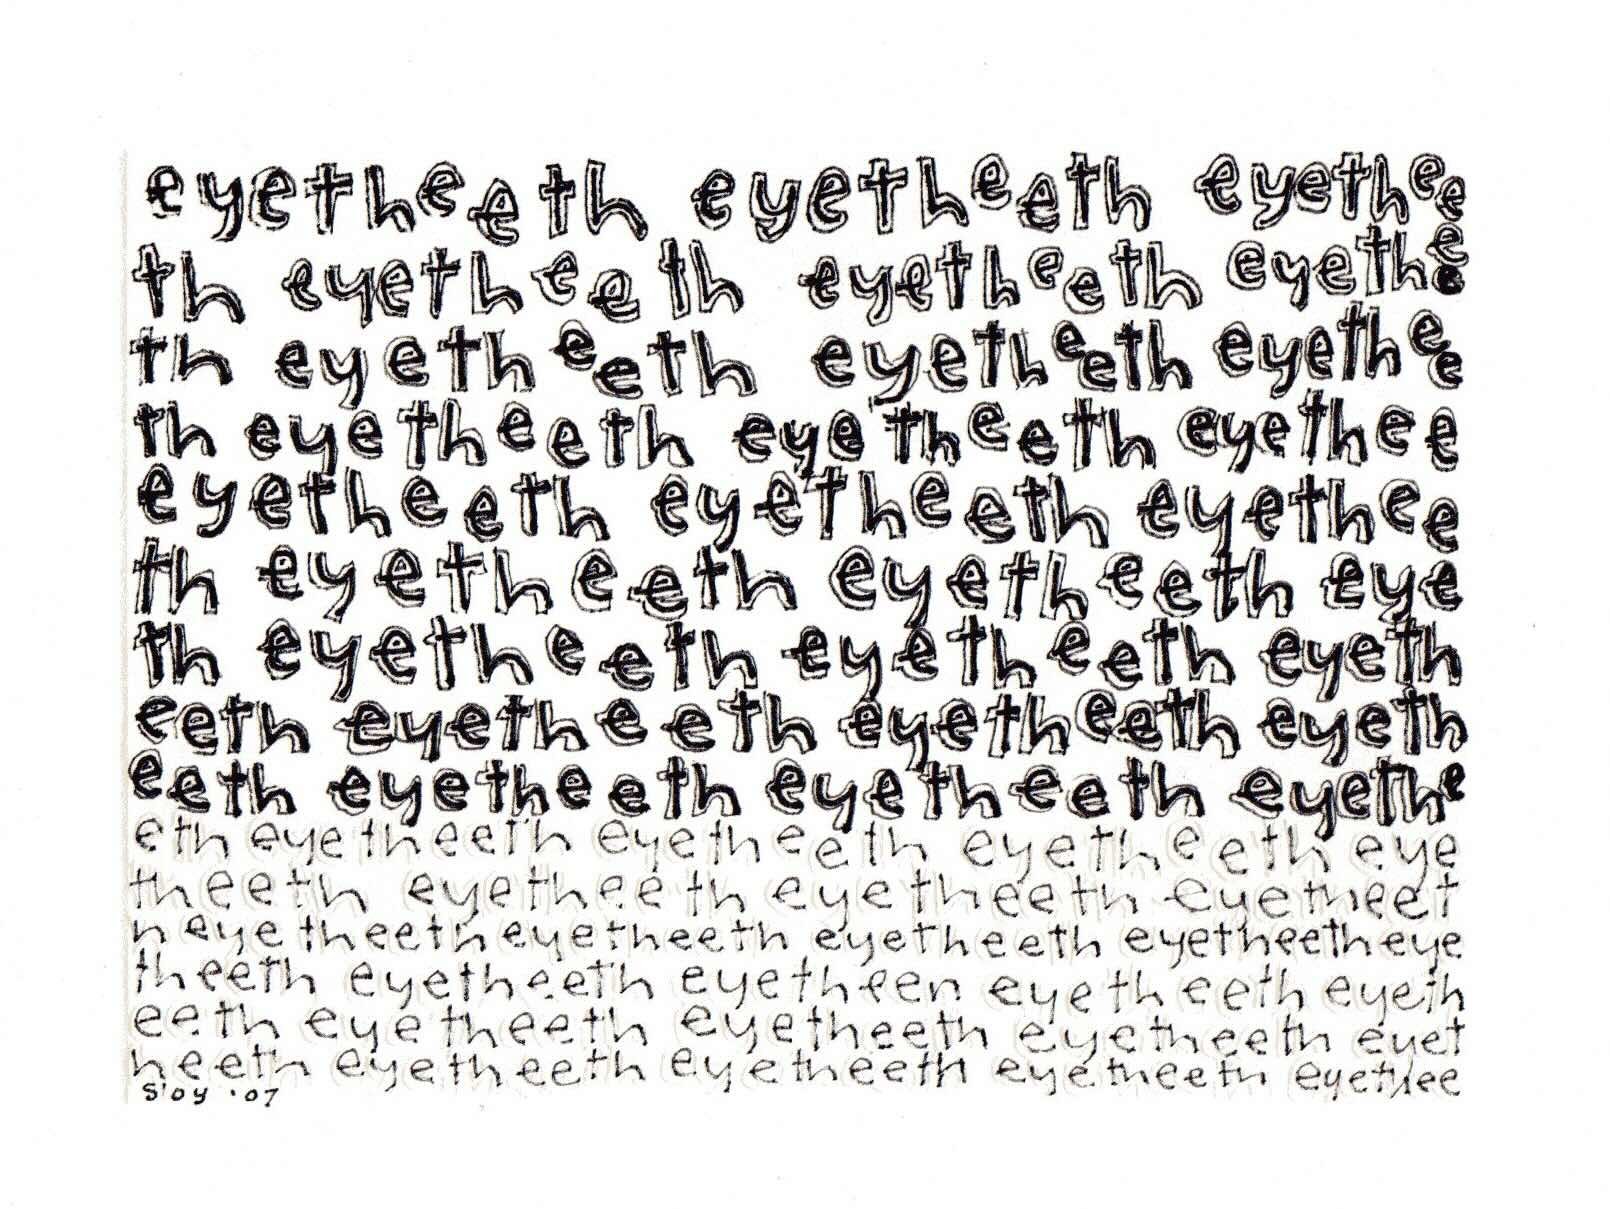 eyetheeth eyetheeth eyethee
th eyetheeth eyetheeth eyethee
th eyetheeth eyetheeth eyethee
th eyetheeth eyetheeth eyethee
eyetheeth eyetheeth eyethee
th eyetheeth eyetheeth eye
th eyetheeth eyetheeth eyeth
eeth eyetheeth eyetheeth eyeth
eeth eyetheeth eyetheeth eyethe
eth eyetheeth eyetheeth eyetheeth eye
theeth eyetheeth eyetheeth eyetheet
h eyetheeth eyetheeth eyetheeth eyetheeth eye
theeth eyetheeth eyetheen eyetheeth eyeth
eeth eyetheeth eyetheeth eyetheeth eyet
heeth eyetheeth eyetheeth eyetheeth eyethee
'07